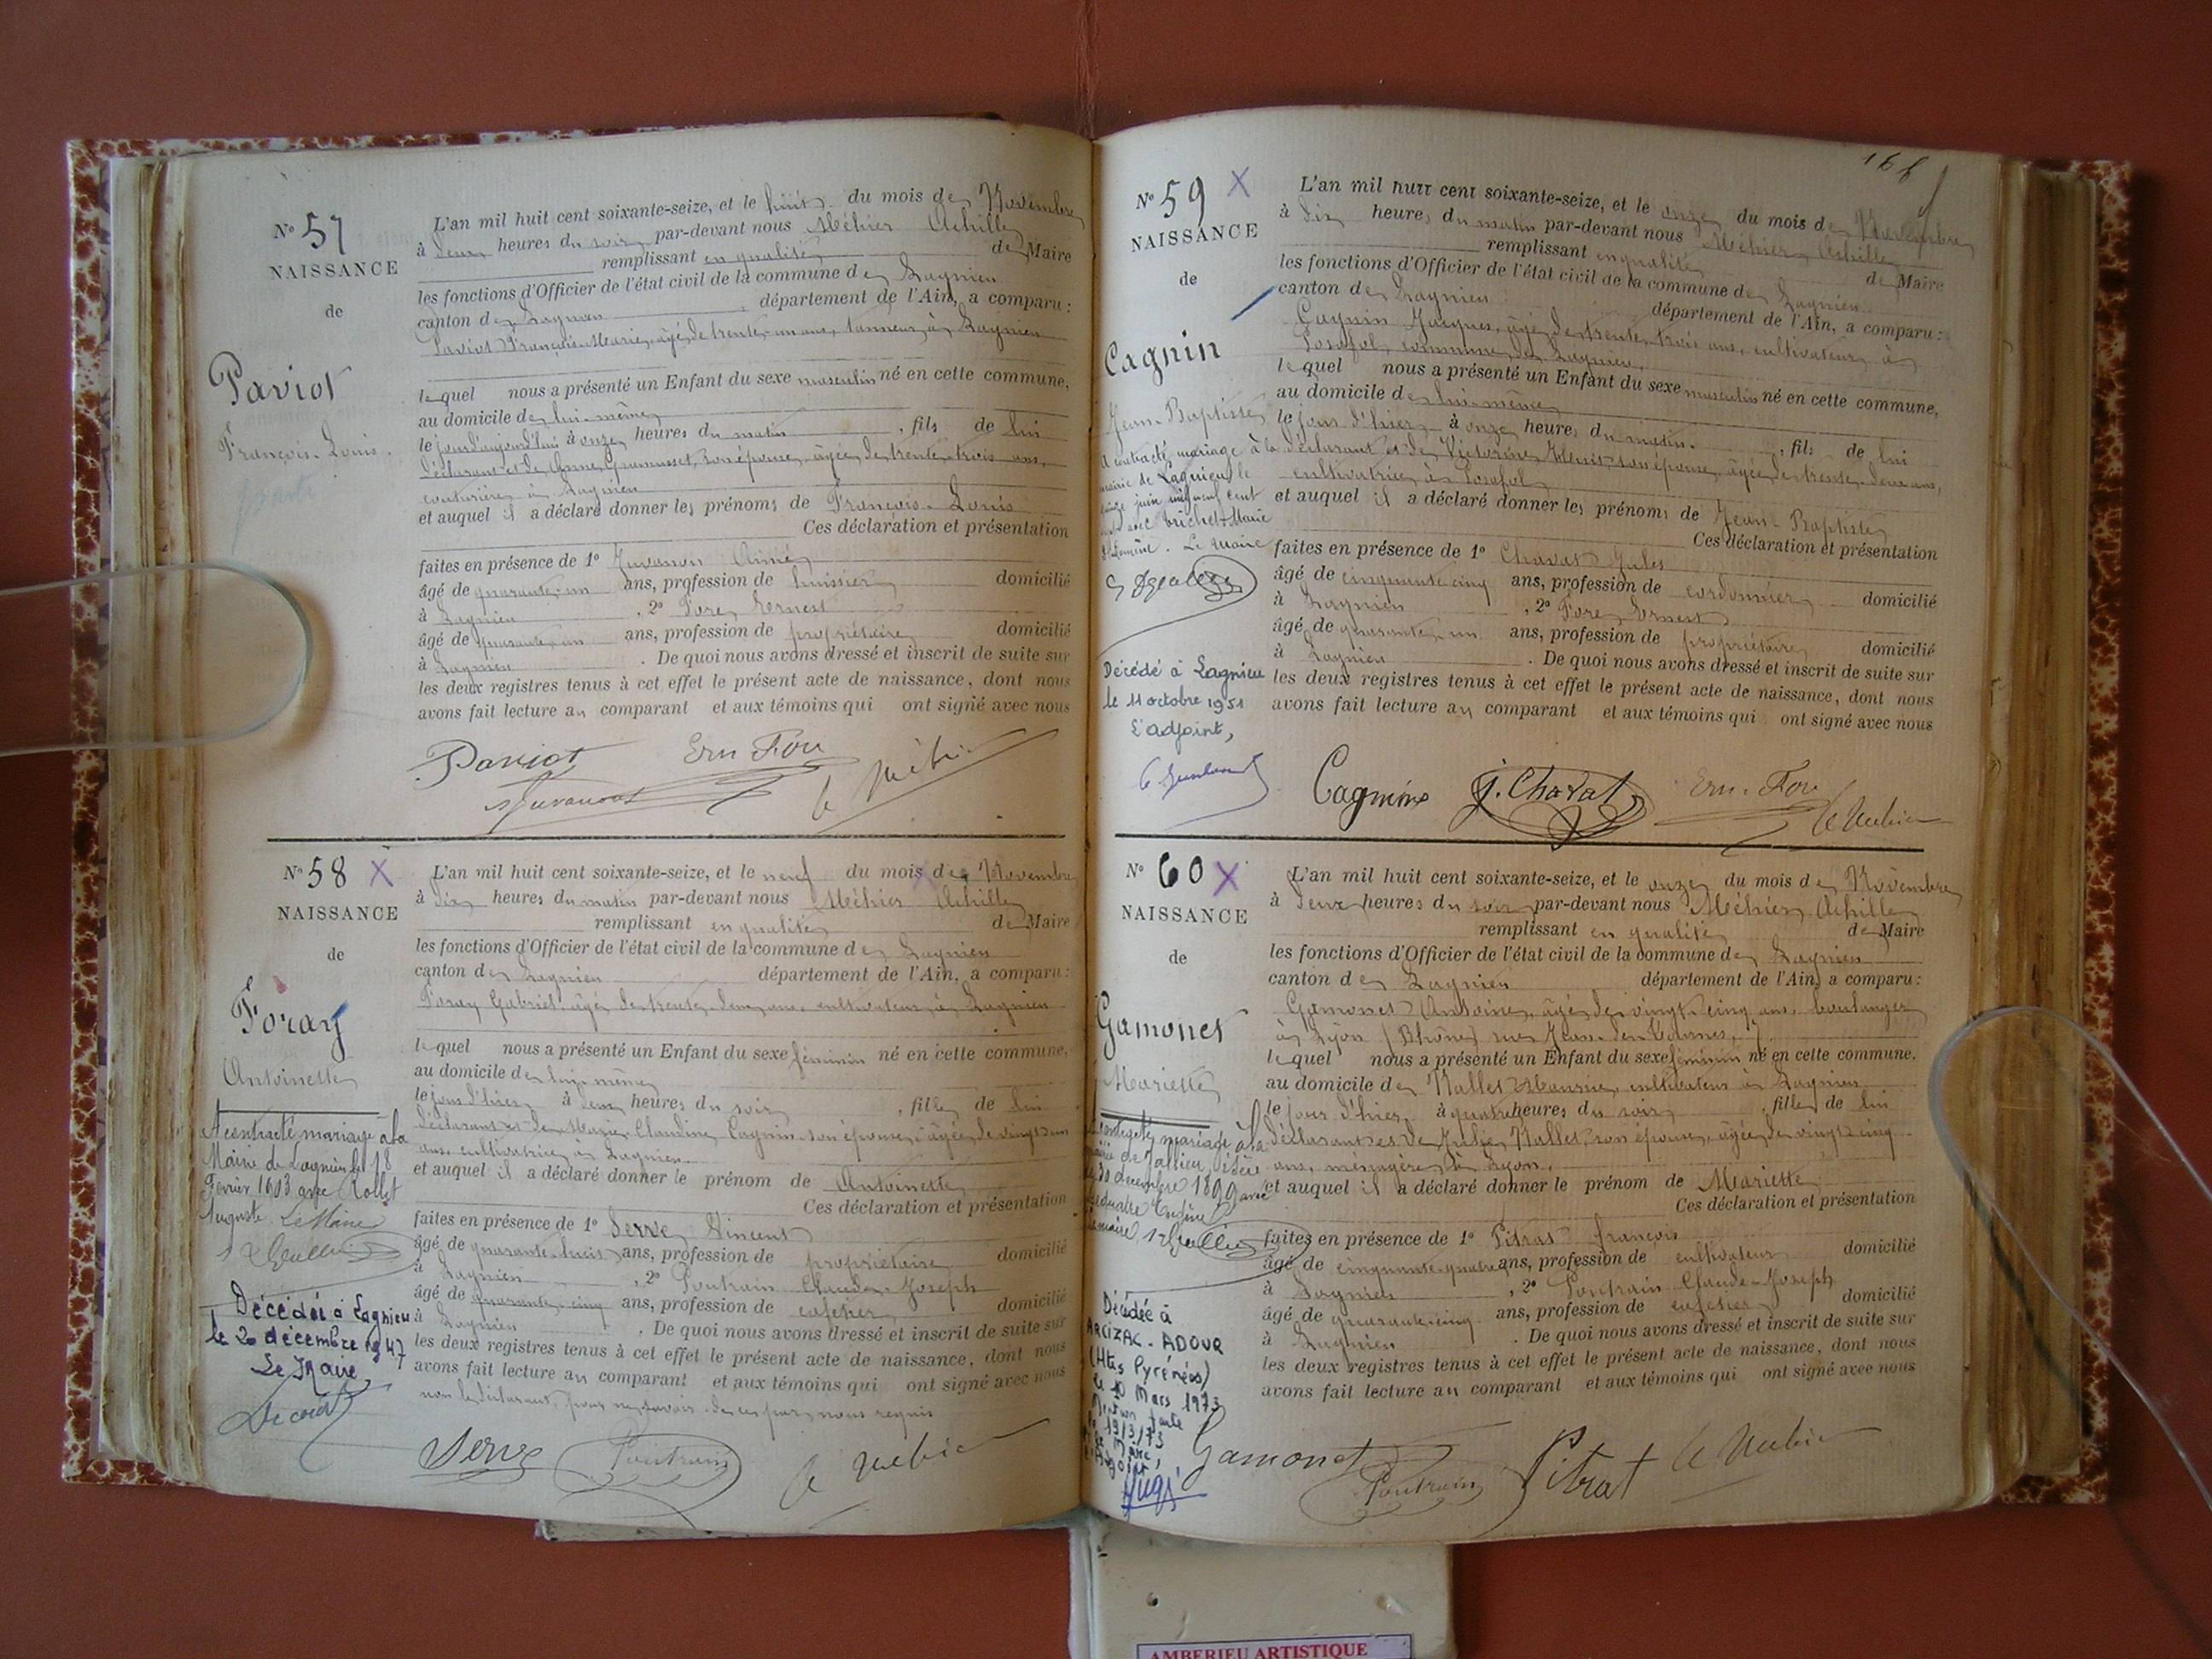 N° 57
NAISSANCE
de
Paviot
François-Louis.
L'an mil huit cent soixante-seize, et le huit du mois de Novembre
à deux heures du soir par-devant nous Méhier Achille
remplissant en qualité de Maire
les fonctions d'Officier de l'état civil de la commune de Lagnieu
canton de Lagnieu, département de l'Ain, a comparu :
Paviot François-Marie, âgé de trente-un ans, tanneur, à Lagnieu
lequel nous a présenté un Enfant du sexe masculin né en cette commune,
au domicile de lui-même
le jour d'aujourd'hui à onze heures du matin, fils de lui
déclarant et de Anne son épouse, âgée de trente-trois ans,
couturière à Lagnieu
et auquel il a déclaré donner les prénoms de François-Louis
Ces déclaration et présentation
faites en présence de 1° Juvanon Aimé
âgé de quarante-un ans, profession de huissier domicilié
à Lagnieu, 2° Fore Ernest
âgé de quarante-un ans, profession de propriétaire domicilié
à Lagnieu. De quoi nous avons dressé et inscrit de suite sur
les deux registres tenus à cet effet le présent acte de naissance, dont nous
avons fait lecture au comparant et aux témoins qui ont signé avec nous
Paviot Ern Fore
Juvanon
N° 58 X
NAISSANCE
de
Foray
Antoinette
A contracté mariage à la
Mairie de Lagnieu le 18
Février 1903 avec Rollet
Auguste Le Maire
Décédée à Lagnieu
le 20 décembre 1947
Le Maire,
L'an mil huit cent soixante-seize, et le neuf du mois de Novembre
à dix heures du matin par-devant nous Méhier Achille
remplissant en qualité de Maire
les fonctions d'Officier de l'état civil de la commune de Lagnieu
canton de Lagnieu département de l'Ain, a comparu :
Foray Gabriel âgé de trente-deux ans, cultivateur à Lagnieu
lequel nous a présenté un Enfant du sexe féminin né en cette commune,
au domicile de lui-même
le jour d'hier à deux heures du soir, fille de lui
déclarant et de Marie-Claudine Cagnin son épouse, âgée de vingt-un
ans, cultivatrice à Lagnieu
et auquel il a déclaré donner le prénom de Antoinette
Ces déclaration et présentation
faites en présence de 1° Serve Vincent
âgé de quarante-huit ans, profession de propriétaire domicilié
à Lagnieu, 2° Poutrain Claude-Joseph
âgé de quarante-cinq ans, profession de cafetier domicilié
à Lagnieu. De quoi nous avons dressé et inscrit de suite sur
les deux registres tenus à cet effet le présent acte de naissance, dont nous
avons fait lecture au comparant et aux témoins qui ont signé avec nous
non le déclarant, pour ne savoir de ce par nous requis
Serve Poutrain
N° 59 X
NAISSANCE
de
Cagnin
Jean-Baptiste
A contracté mariage à la
mairie de Lagnieu le
juin mil neuf cent
avec Marie
Le Maire
Décédé à Lagnieu
le 11 octobre 1951
L'adjoint,
L'an mil huit cent soixante-seize, et le onze du mois de Novembre
à dix heures du matin par-devant nous Méhier Achille
remplissant en qualité de Maire
les fonctions d'Officier de l'état civil de la commune de Lagnieu
canton de Lagnieu département de l'Ain, a comparu :
Cagnin Jacques, âgé de trente-trois ans, cultivateur à
Posafol, commune de Lagnieu,
lequel nous a présenté un Enfant du sexe masculin né en cette commune,
au domicile de lui-même
le jour d'hier à onze heures du matin, fils de lui
déclarant et de Victorine son épouse, âgée de trente-deux ans,
cultivatrice à Posafol
et auquel il a déclaré donner les prénoms de Jean-Baptiste
Ces déclaration et présentation
faites en présence de 1° Chavat Jules
âgé de cinquante-cinq ans, profession de cordonnier domicilié
à Lagnieu, 2° Fore Ernest
âgé de quarante-un ans, profession de propriétaire domicilié
à Lagnieu. De quoi nous avons dressé et inscrit de suite sur
les deux registres tenus à cet effet le présent acte de naissance, dont nous
avons fait lecture au comparant et aux témoins qui ont signé avec nous
Cagnin J. Chavat Ern. Fore
N° 60 X
NAISSANCE
de
Gamonet
Mariette
Contracté mariage à la
mairie de Jallieu, Isère
le 30 décembre 1899 avec
Décédée à
ARCIZAC-ADOUR
(Htes Pyrénées)
le 10 Mars 1973
Mention faite
le 19/3/73
L'an mil huit cent soixante-seize, et le onze du mois de Novembre
à deux heures du soir par-devant nous Méhier Achille
remplissant en qualité de Maire
les fonctions d'Officier de l'état civil de la commune de Lagnieu
canton de Lagnieu département de l'Ain, a comparu :
Gamonet Antoine, âgé de vingt-cinq ans, boulanger
à Lyon (Rhône) rue Jean-de-Tournes, 7
lequel nous a présenté un Enfant du sexe féminin né en cette commune,
au domicile de Nallet Maurice, cultivateur à Lagnieu
le jour d'hier à quatre heures du soir, fille de lui
déclarant et de Julie Nallet, son épouse, âgée de vingt-cinq
ans, ménagère à Lyon,
et auquel il a déclaré donner le prénom de Mariette
Ces déclaration et présentation
faites en présence de 1° Pitrat François
âgé de cinquante-quatre ans, profession de cultivateur domicilié
à Lagnieu, 2° Poutrain Claude-Joseph
âgé de quarante-cinq ans, profession de cafetier domicilié
à Lagnieu. De quoi nous avons dressé et inscrit de suite sur
les deux registres tenus à cet effet le présent acte de naissance, dont nous
avons fait lecture au comparant et aux témoins qui ont signé avec nous
Gamonet Poutrain Pitrat
AMBERIEU ARTISTIQUE